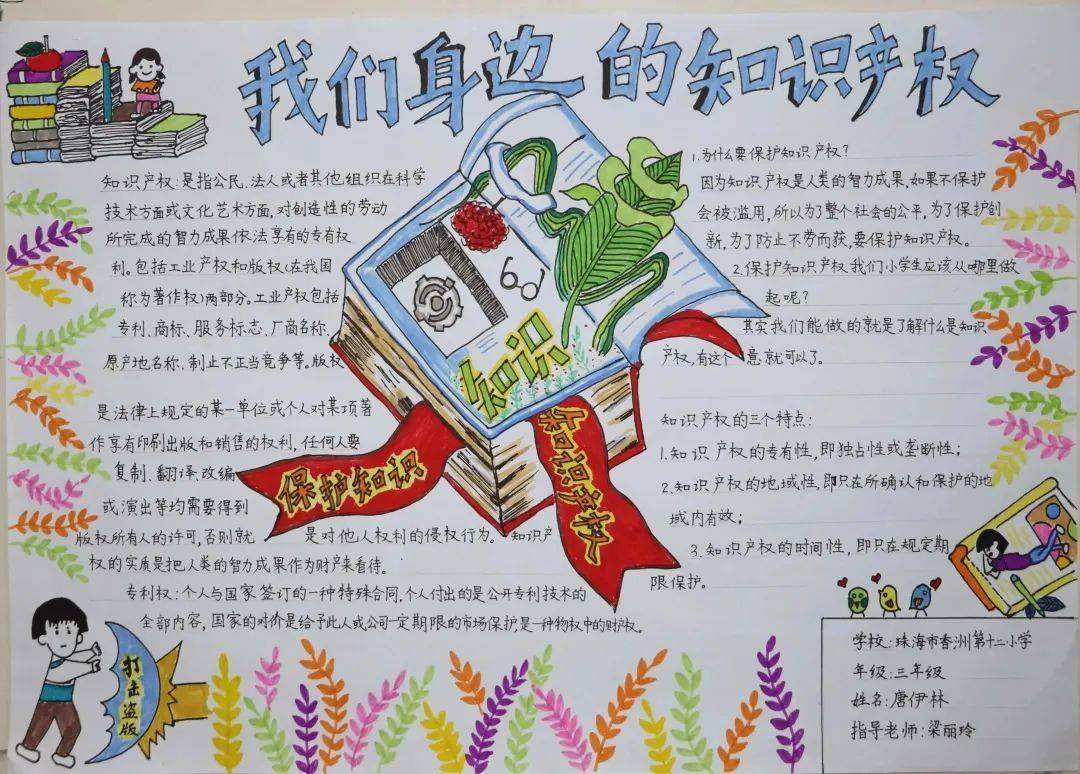 我们身边的知识产权
知识产权:是指公民.法人或者其他组织在科学
技术方面或文化艺术方面,对创造性的劳动
所完成的智力成果依法享有的专有权
利。包括工业产权和版权(在我国
称为著作权)两部分。工业产权包括
专利、商标、服务标志、厂商名称、
原产地名称、制止不正当竞争等。版权
是法律上规定的某一单位或个人对某项著
作享有印刷出版和销售的权利,任何人要
复制、翻译、改编
或演出等均需要得到
版权所有人的许可,否则就
是对他人权利的侵权行为。知识产
权的实质是把人类的智力成果作为财产来看待。
专利权:个人与国家签订的一种特殊合同,个人付出的是公开专利技术的
全部内容,国家的对价是给予此人或公司一定期限的市场保护,是一种物权中的财产权。
知识
保护知识
知识产权
1.为什么要保护知识产权?
因为知识产权是人类的智力成果,如果不保护
会被滥用,所以为了整个社会的公平,为了保护创
新,为了防止不劳而获,要保护知识产权。
2.保护知识产权我们小学生应该从哪里做
起呢?
其实我们能做的就是了解什么是知识
产权,有这个意就可以了。
知识产权的三个特点:
1.知识产权的专有性,即独占性或垄断性;
2.知识产权的地域性,即只在所确认和保护的地
域内有效;
3.知识产权的时间性,即只在规定期
限保护。
打击盗版
学校:珠海市香洲第十二小学
年级:三年级
姓名:唐伊林
指导老师:梁丽玲